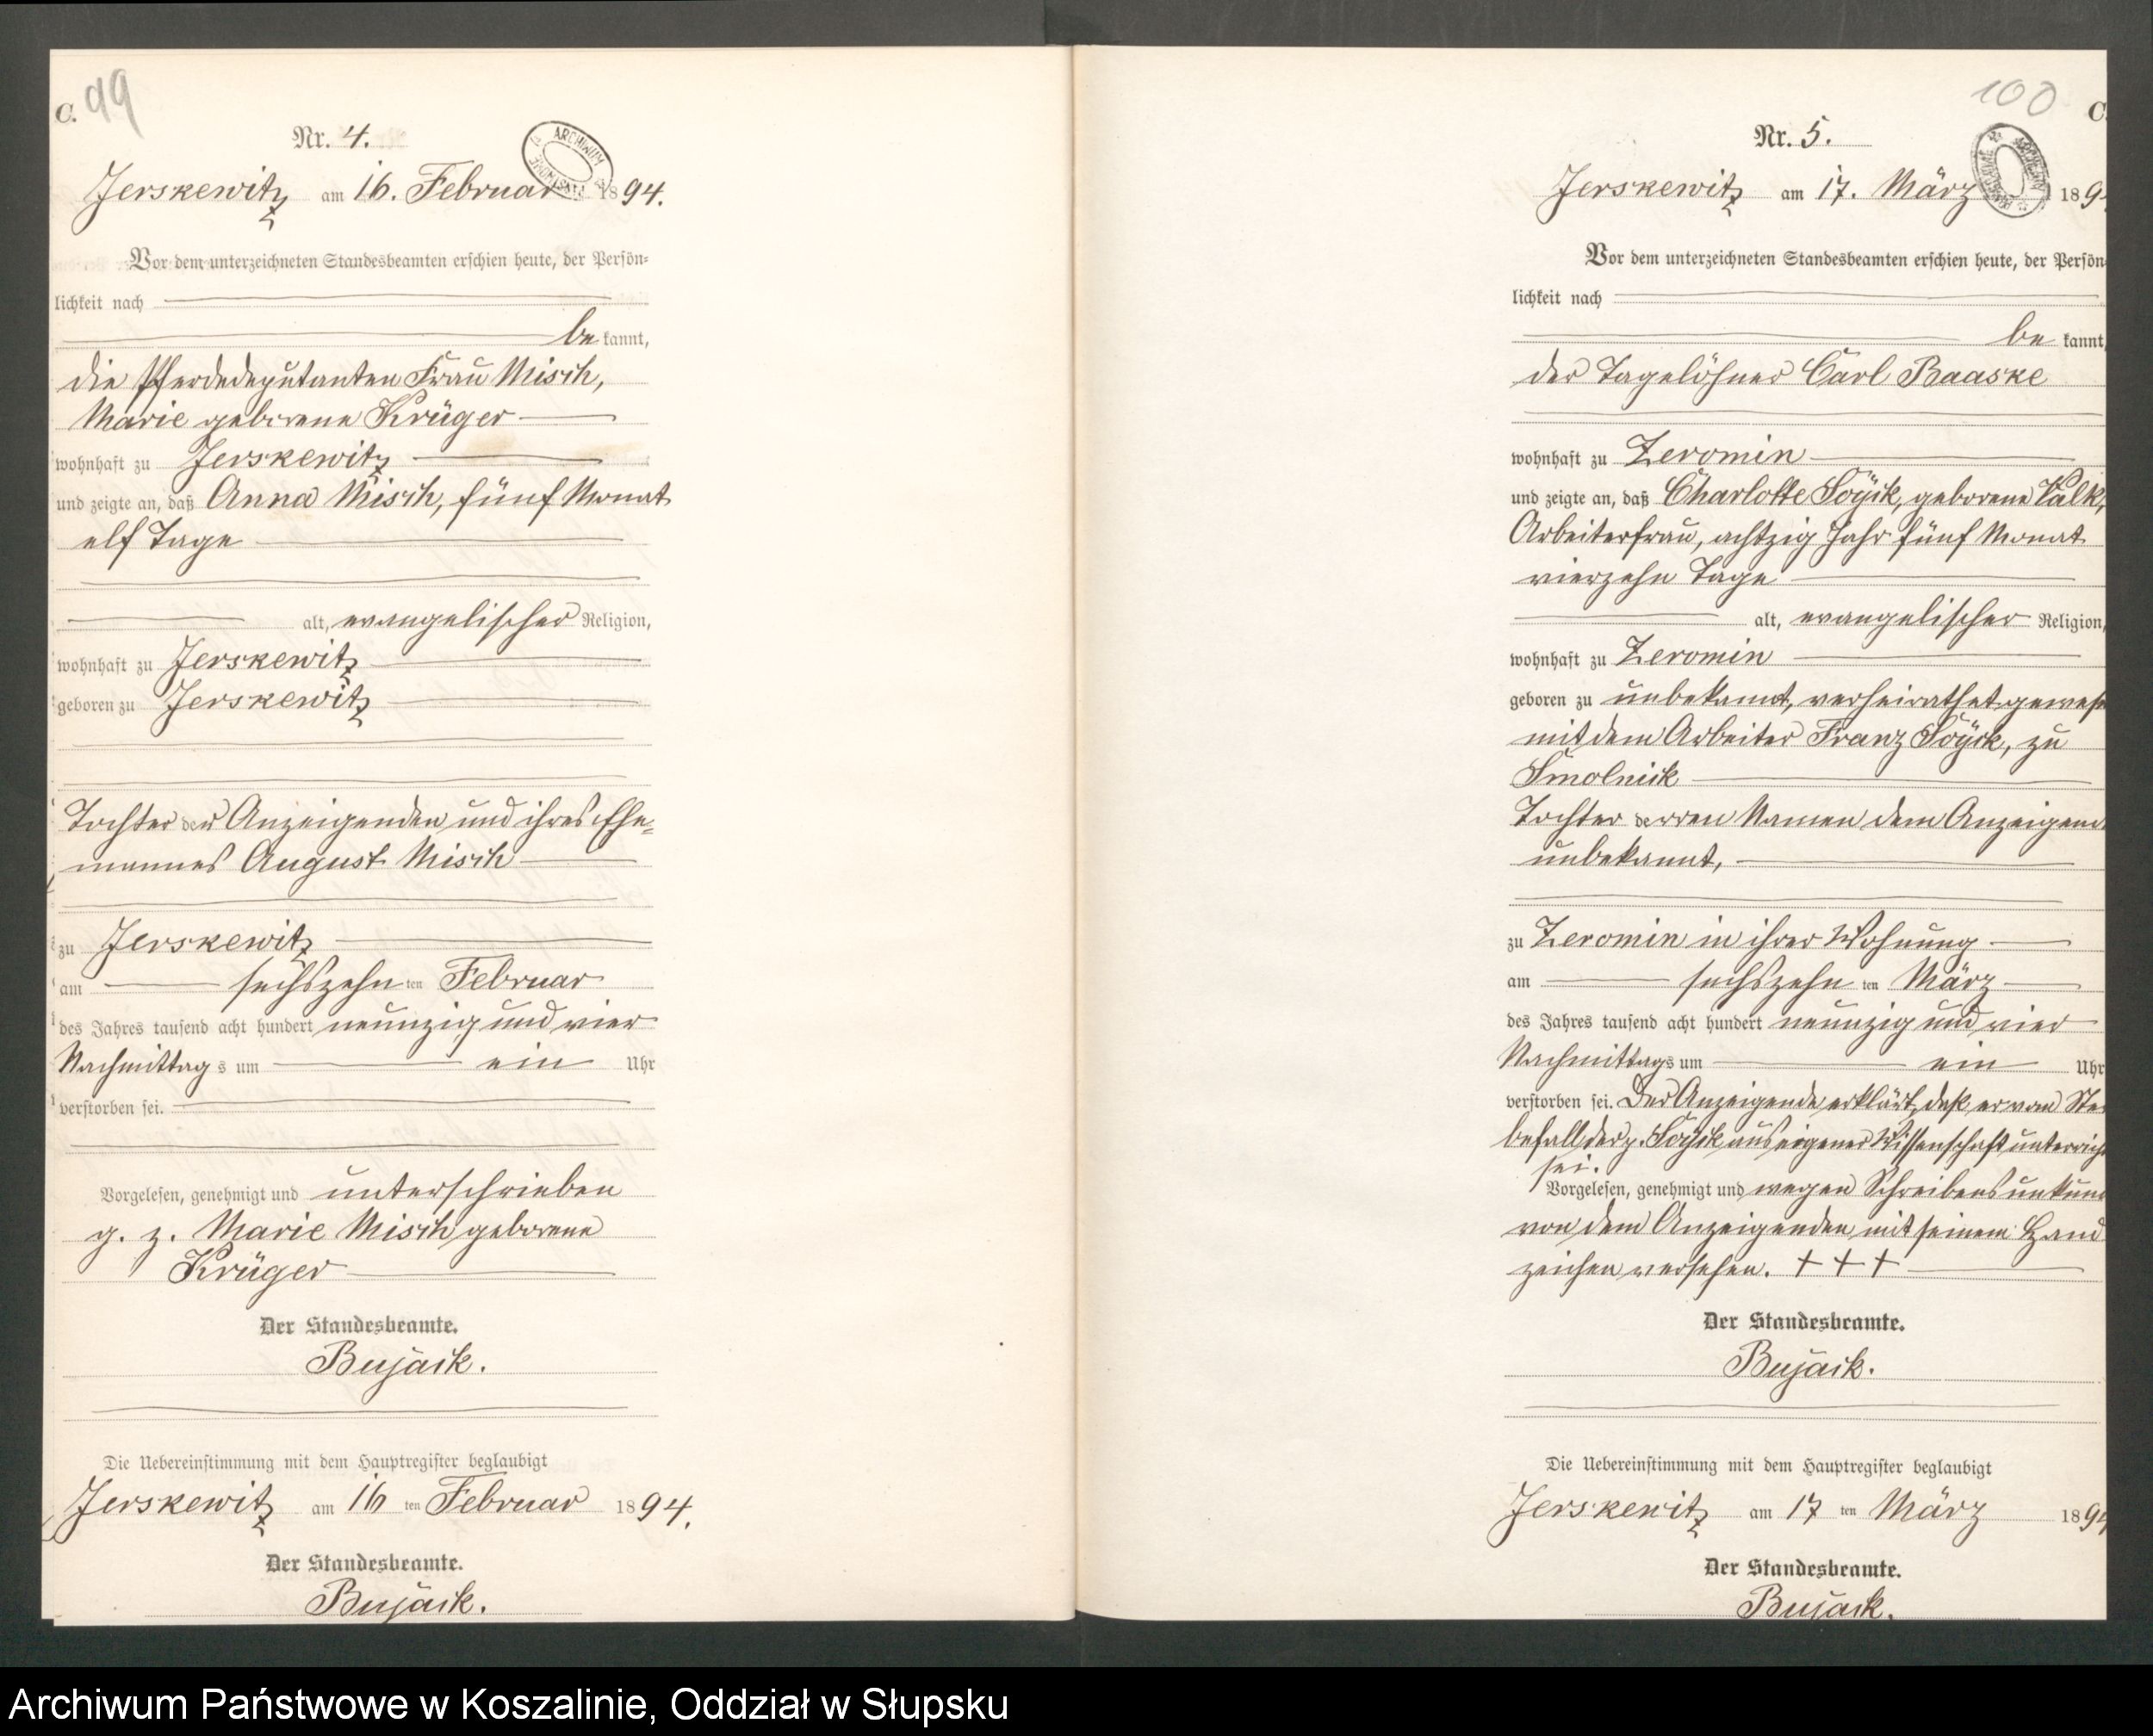 C. 99
Nr. 4.
ARCHIWUM
Jerskewitz am 16. Februar 1894.
Vor dem unterzeichneten Standesbeamten erschien heute, der Persön-
lichkeit nach
be kannt,
die Pferdedeputanten Frau Misch,
Marie geborene Krüger
wohnhaft zu Jerskewitz
und zeigte an, daß Anna Misch, fünf Monat
elf Tage
alt, evangelischer Religion,
wohnhaft zu Jerskewitz
geboren zu Jerskewitz
Tochter der Anzeigenden und ihres Ehe-
mannes August Misch
zu Jerskewitz
am sechszehn ten Februar
des Jahres tausend acht hundert neunzig und vier
Nachmittag s um ein Uhr
verstorben sei.
Vorgelesen, genehmigt und unterschrieben
g. z. Marie Misch geborene
Krüger
Der Standesbeamte.
Bujack.
Die Uebereinstimmung mit dem Hauptregister beglaubigt
Jerskewitz am 16 ten Februar 1894.
Der Standesbeamte.
Bujack.
100 C.
Nr. 5.
Jerskewitz am 17. März 189
Vor dem unterzeichneten Standesbeamten erschien heute, der Persön
lichkeit nach
be kannt,
der Tagelöhner Carl Baaske
wohnhaft zu Zeromin
und zeigte an, daß Charlotte geborene
Arbeiterfrau, achtzig Jahr fünf Monat
vierzehn Tage
alt, evangelischer Religion,
wohnhaft zu Zeromin
geboren zu unbekannt, verheirathet gewese
mit dem Arbeiter Franz zu
Smolnick
Tochter derren Namen dem Anzeigend
unbekannt,
zu Zeromin in ihrer Wohnung
am sechszehn ten März
des Jahres tausend acht hundert neunzig und vier
Nachmittags um ein Uhr
verstorben sei. Der Anzeigende erklärt, daß er von Ste
befall der p. aus eigener Wissenschaft unterrich
sei.
Vorgelesen, genehmigt und wegen Schreibensunkun
von dem Anzeigenden mit seinem Hand
zeichen versehen. + + +
Der Standesbeamte.
Bujack.
Die Uebereinstimmung mit dem Hauptregister beglaubigt
Jerskewitz am 17 ten März 189
Der Standesbeamte.
Bujack.
Archiwum Państwowe w Koszalinie, Oddział w Słupsku